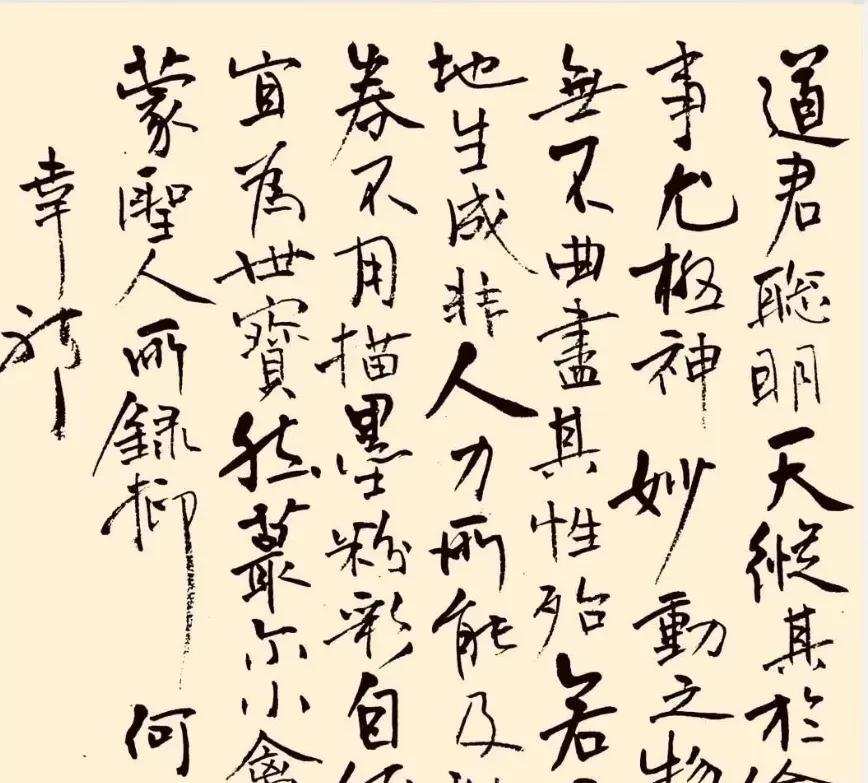 道君聰明天縱其於
事尤極神妙動之物
無不曲盡其性殆若
地生成非人力所能及
卷不用描墨粉彩自
宜為世寶然蕞尔小禽
蒙聖人所録抑何
幸耶